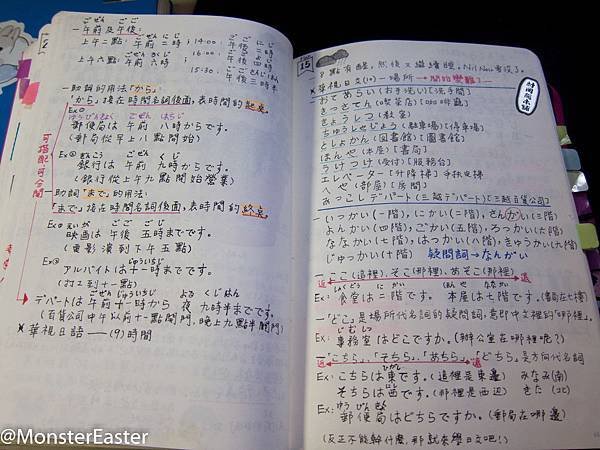 ごぜん ごご
一午前及午後：
ごぜん にじ ごご にじ
上午二點：午前 二時；14:00：午後 二時
ごぜん ろくじ ごご よじ
上午六點：午前 六時 16:00：午後 四時
ごご さんじはん
15:30：午後 三時半
一助詞的用法「から」
「から」接在時間名詞後面，表時間的起点。
Ex①
ゆうびんきょく ごぜん はちじ
郵便局は 午前 八時からです。
(郵局從早上八點開始)
Ex② ぎんこう ごぜん くじ
銀行は 午前 九時からです。
(銀行從上午九點開始営業)
一助詞「まで」的用法：
「まで」接在時間名詞後面，表時間的終点。
Ex① えいが ごご ごじ
映画は 午後 五時までです。
(電影演到下午五點)
Ex② じゅういちじ
アルバイトは十一時までです。
(打工到十一點)
ごぜんじゅういちじ よる くじはん
デパートは午前十一時から 夜 九時半までです。
(百貨公司中午以前十一點開門，晚上九點半關門)
※華視日語——(9)時間
可搭配可分開
15
※華視日文(10)一場所→開始變難了
おてあらい(お手洗い)[洗手間]
きっさてん(喫茶店)[咖啡廳]
きょうしつ(教室)
ちゅうしゃじょう(駐車場)[停車場]
としょかん(図書館)[圖書館]
ほんや(本屋)[書局]
うけつけ(受付)[服務台]
エレベーター[升降梯]
へや(部屋)[房間]
みつこしデパート(三越デパート)[三越百貨公司]
一いっかい(一階)，にかい(二階)，さんがい(三階)
よんかい(四階)，ごかい(五階)，ろっかい(六階)
ななかい(七階)，はっかい(八階)，きゅうかい(九階)
じゅっかい(十階) 疑問詞→なんがい
一ここ(這裡)，そこ(那裡)，あそこ(那裡)
近 遠
しょくどう にかい ほんや ななかい
Ex：食堂は二階です。本屋は七階です。(書局在七樓)
一「どこ」是場所代名詞的疑問詞，意即中文裡的「哪裡」。
じむしつ
Ex：事務室はどこですか。(辦公室在哪裡呢？)
一「こちら」，「そちら」，「あちら」，「どちら」是方向代名詞
近 遠
ひがし
Ex：こちらは東です。(這裡是東邊) みなみ(南)
にし
そちらは西です。(那裡是西邊) きた(北)
ゆうびんきょく
Ex：郵便局はどちらですか。(郵局在哪邊)
(反正不能幹什麼，那就來學日文吧！)
@MonsterEaster